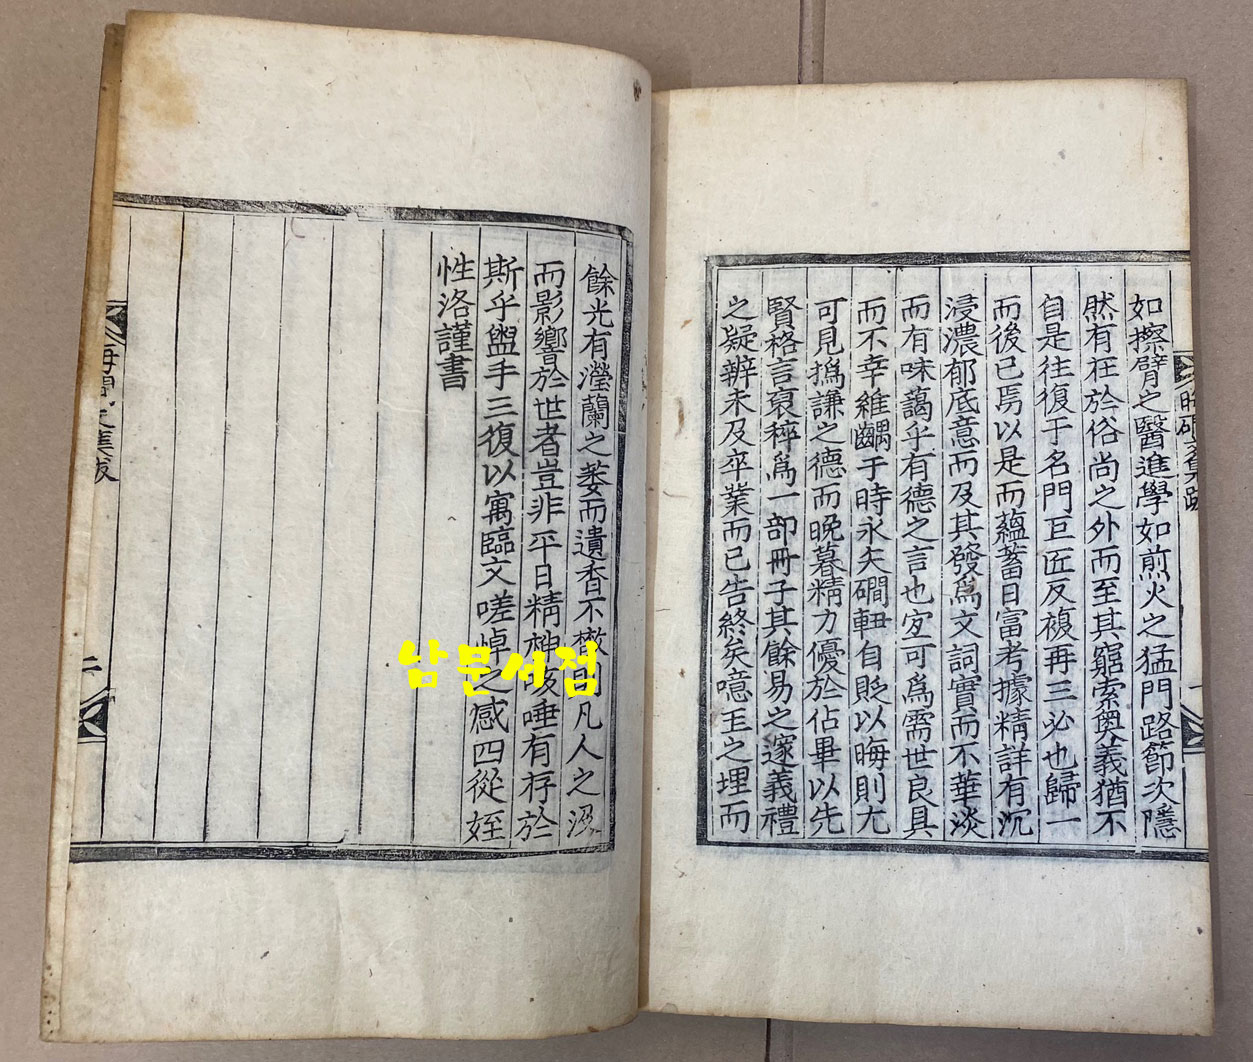 如擦臂之醫進學如煎火之猛門路節次隱
然有在於俗尚之外而至其窮索奧義猶不
自是往復于名門巨匠反複再三必也歸一
而後已焉以是而蘊蓄日富考據精詳有沉
浸濃郁底意而及其發爲文詞實而不華淡
而有味藹乎有德之言也宜可爲需世良具
而不幸維齵于時永矢磵軸自貶以晦則尤
可見撝謙之德而晩暮精力優於佔畢以先
賢格言裒稡爲一部冊子其餘易之邃義禮
之疑辨未及卒業而已告終矣噫玉之埋而
餘光有瀅蘭之萎而遺香不散則凡人之
而影響於世者豈非平日精神咳唾有存於
斯乎盥手三復以寓臨文嗟悼之感四從姪
性洛謹書
文集跋
二
남문서점